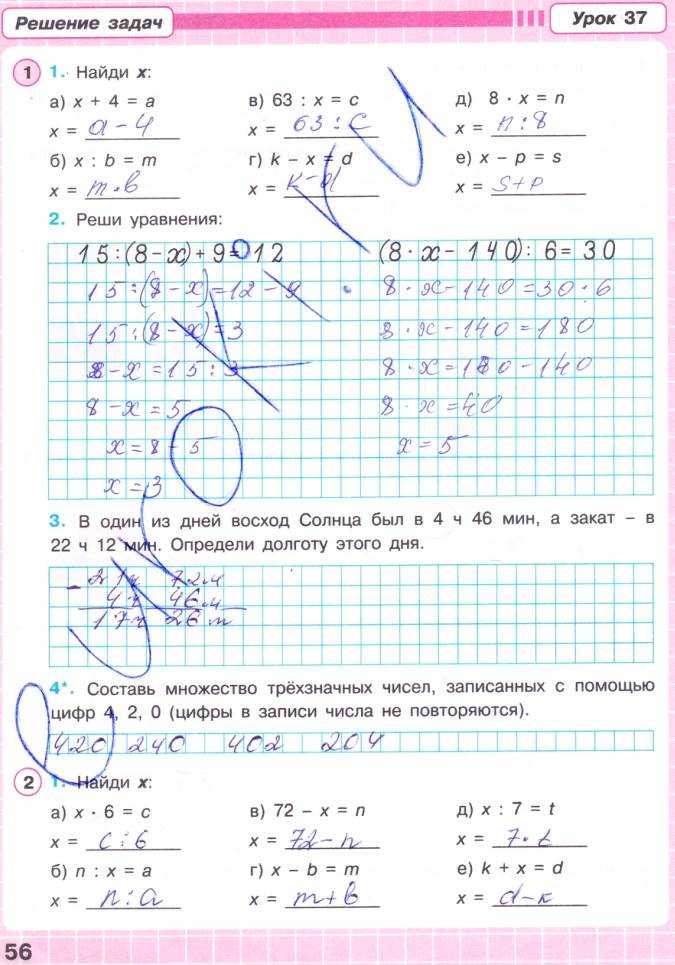 Решение задач
Урок 37
1 1. Найди x:
а) x + 4 = a
в) 63 : x = c
д) 8 · x = n
x = a - 4
x = 63 : c
x = n : 8
б) x : b = m
г) k – x = d
е) x – p = s
x = m · b
x = k - d
x = s + p
2. Реши уравнения:
15 : (8 - x) + 9 = 12
(8 · x - 140) : 6 = 30
15 : (8 - x) = 12 - 9
8 · x - 140 = 30 · 6
15 : (8 - x) = 3
8 · x - 140 = 180
8 - x = 15 : 3
8 · x = 180 - 140
8 - x = 5
8 · x = 40
x = 8 - 5
x = 5
x = 3
3. В один из дней восход Солнца был в 4 ч 46 мин, а закат – в
22 ч 12 мин. Определи долготу этого дня.
- 21ч 72м
4ч 46м
17ч 26м
4*. Составь множество трёхзначных чисел, записанных с помощью
цифр 4, 2, 0 (цифры в записи числа не повторяются).
420 240 402 204
2 1. Найди x:
а) x · 6 = c
в) 72 – x = n
д) x : 7 = t
x = c : 6
x = 72 - n
x = 7 · t
б) n : x = a
г) x – b = m
е) k + x = d
x = n : a
x = m + b
x = d - k
56